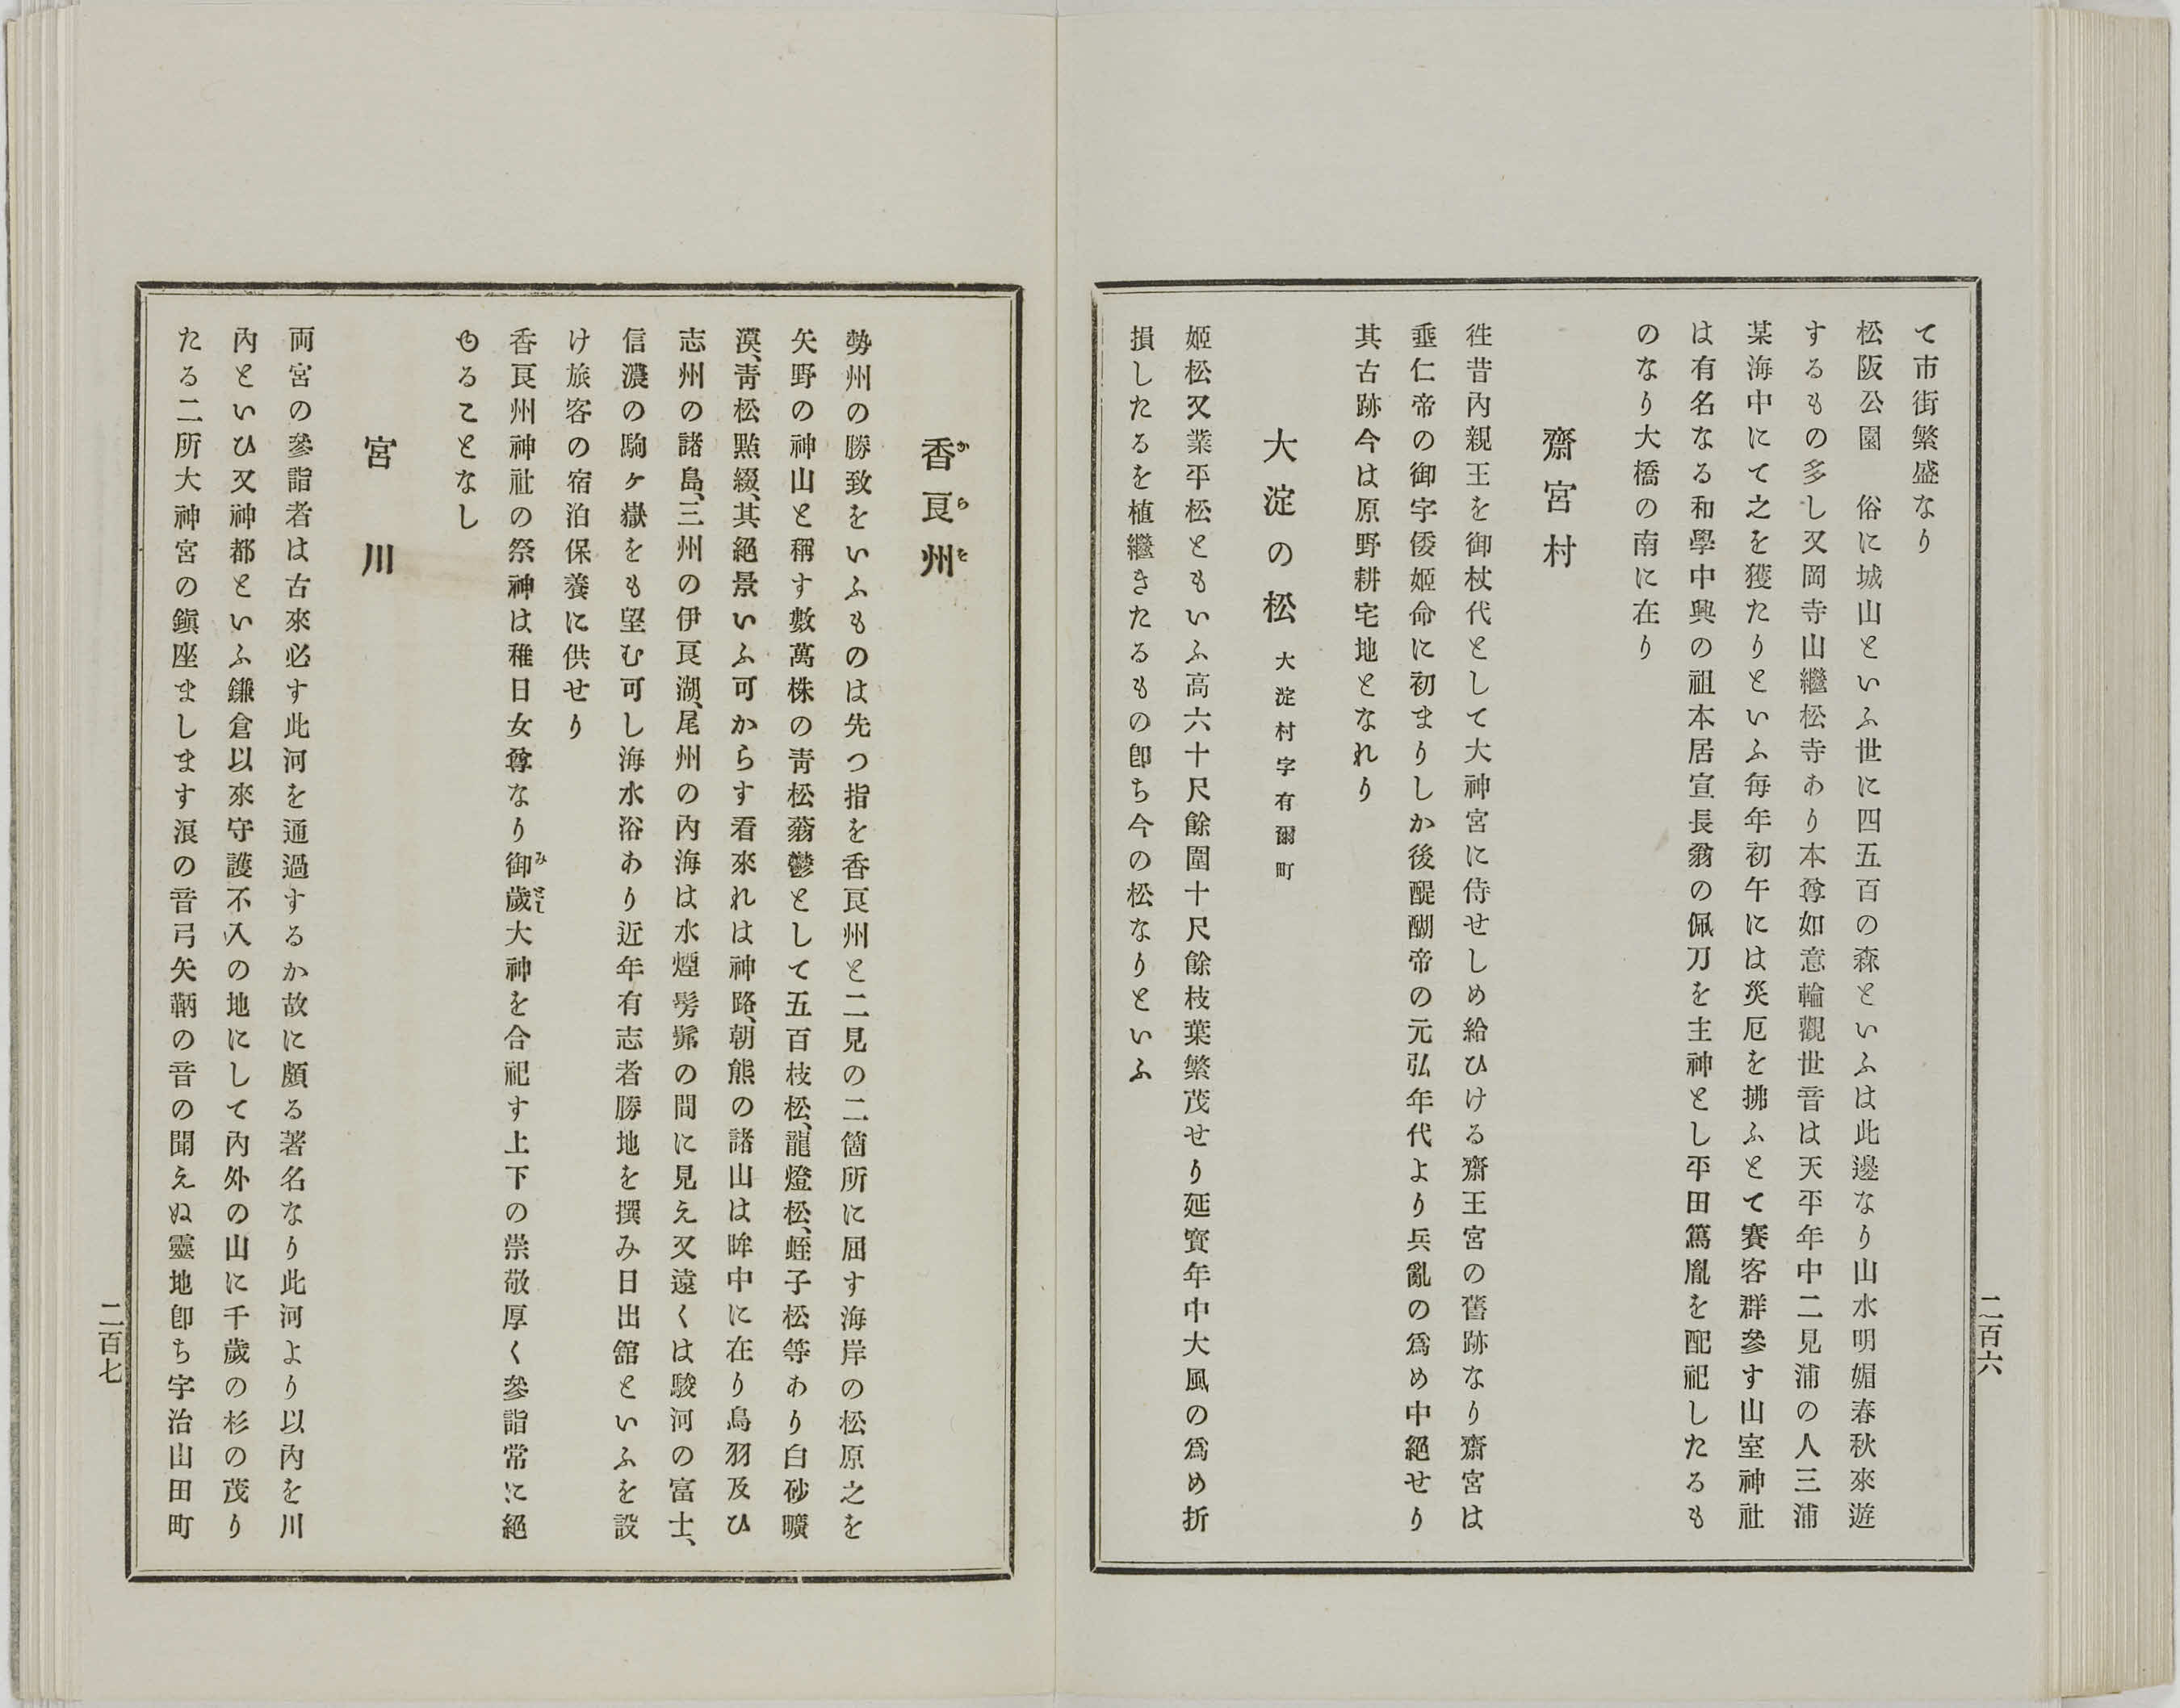 て市街繁盛なり
松阪公園　俗に城山といふ世に四五百の森といふは此邊なり山水明媚春秋來遊
するもの多し又岡寺山繼松寺あり本尊如意輪觀世音は天平年中二見浦の人三浦
某海中にて之を獲たりといふ毎年初午には災厄を拂ふとて賽客群參す山室神社
は有名なる和學中興の祖本居宣長翁の佩刀を主神とし平田篤胤を配祀したるも
のなり大橋の南に在り
齋宮村
徃昔內親王を御杖代として大神宮に侍せしめ給ひける齋王宮の舊跡なり齋宮は
垂仁帝の御宇倭姬命に初まりしか後醍醐帝の元弘年代より兵亂の爲め中絕せり
其古跡今は原野耕宅地となれり
大淀の松 大淀村字有爾町
姬松又業平松ともいふ高六十尺餘圍十尺餘枝葉繁茂せり延寶年中大風の爲め折
損したるを植繼きたるもの卽ち今の松なりといふ
二百六
香良州
からを
勢州の勝致をいふものは先つ指を香良州と二見の二箇所に屈す海岸の松原之を
矢野の神山と稱す數萬株の靑松蓊鬱として五百枝松、龍燈松、蛭子松等あり白砂曠
漠、靑松點綴、其絕景いふ可からす看來れは神路、朝熊の諸山は眸中に在り鳥羽及ひ
志州の諸島、三州の伊良湖、尾州の內海は水煙髣髴の間に見え又遠くは駿河の富士、
信濃の駒ヶ嶽をも望む可し海水浴あり近年有志者勝地を撰み日出舘といふを設
け旅客の宿泊保養に供せり
香良州神社の祭神は稚日女尊なり御歲大神を合祀す上下の崇敬厚く參詣常に絕
みとし
ゆることなし
宮川
両宮の參詣者は古來必す此河を通過するか故に頗る著名なり此河より以內を川
內といひ又神都といふ鎌倉以來守護不入の地にして內外の山に千歲の杉の茂り
たる二所大神宮の鎭座まします浪の音弓矢鞆の音の聞えぬ靈地卽ち宇治山田町
二百七